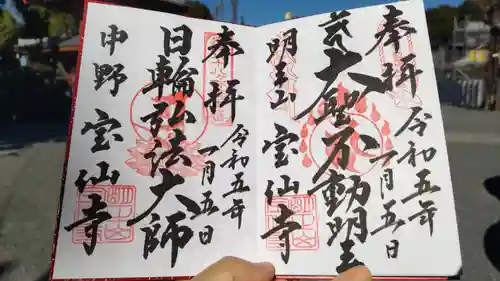 奉拝
令和五年
一月五日
大聖不動明王
明王山
宝仙寺
奉拝
令和五年
一月五日
日輪弘法大師
中野 宝仙寺